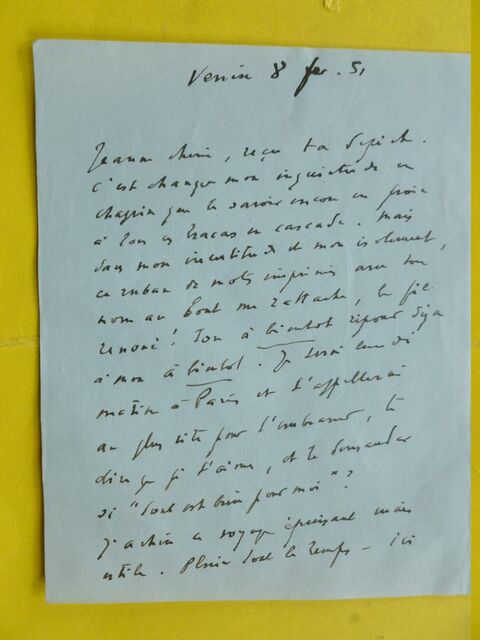 Venise 8 fev. 51
Jeanne chérie, reçu ta dépêche.
C'est changer mon inquiétude en
chagrin que te savoir encore en proie
à tous ces tracas en cascade. Mais
dans mon incertitude et mon isolement,
ce ruban de mots imprimés avec ton
nom au bout me rattache, le fil
renoué! Ton à bientôt répond déjà
à mon à bientôt. Je serai lundi
matin à Paris et t'appellerai
au plus vite pour t'embrasser, te
dire que je t'aime, et te demander
si "tout est bien pour moi"?
J'achève ce voyage épuisant mais
utile. Pluie tout le temps – ici